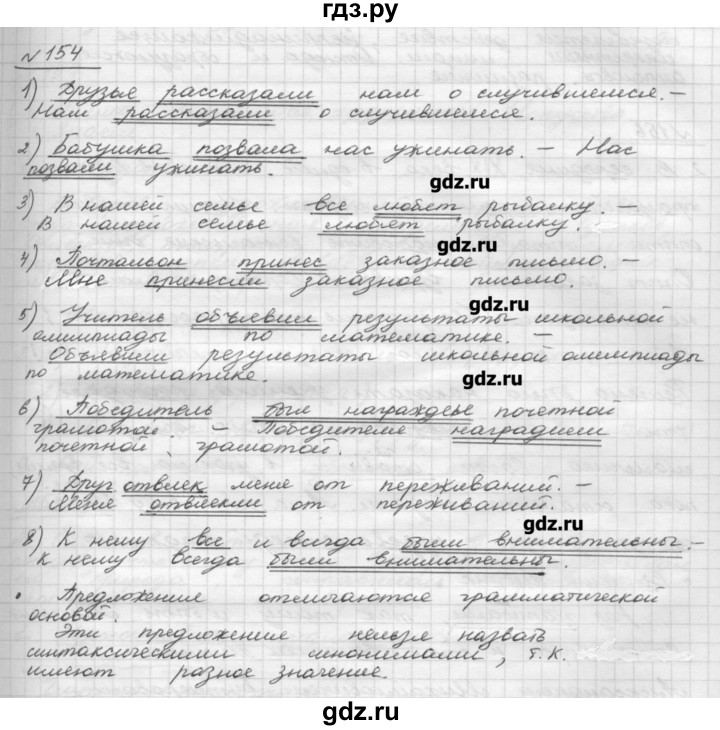 гдз.ру
№154
1) Друзья рассказали нам о случившемся. –
Нам рассказали о случившемся.
2) Бабушка позвала нас ужинать. – Нас
позвали ужинать.
gdz.ru
3) В нашей семье все любят рыбалку. –
В нашей семье любят рыбалку.
gdz.ru
4) Почтальон принес заказное письмо. –
Мне принесли заказное письмо.
gdz.ru
5) Учитель объявил результаты школьной
олимпиады по математике. –
Объявили результаты школьной олимпиады
по математике.
gdz.ru
6) Победитель был награждён почетной
грамотой. – Победителя наградили
почетной грамотой.
gdz.ru
7) Друг отвлек меня от переживаний. –
Меня отвлекли от переживаний.
gdz.ru
8) К нему все и всегда были внимательны. –
К нему всегда были внимательны.
• Предложения отличаются грамматической
основой.
Эти предложения нельзя назвать
синтаксическими синонимами, т.к.
имеют разное значение.
gdz.ru